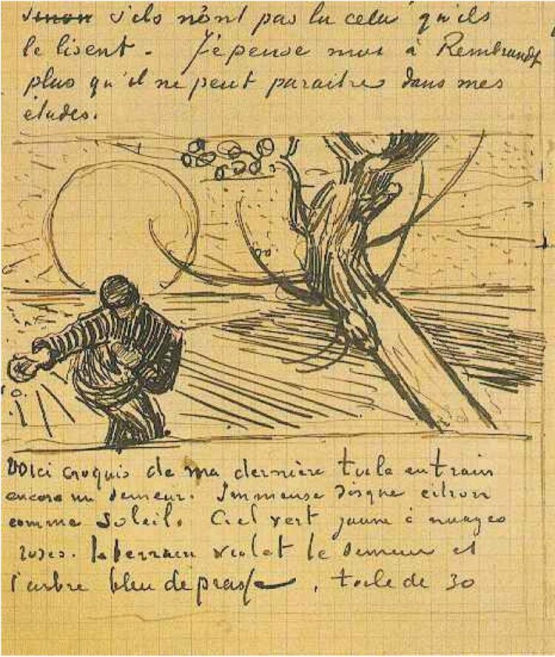 s'ils n'ont pas lu cela qu'ils
le lisent. Je pense moi à Rembrandt
plus qu'il ne peut paraitre dans mes
études.
Voici croquis de ma dernière toile en train
encore un semeur. Immense disque citron
comme soleil. Ciel vert jaune à nuages
roses. le terrain violet le semeur et
l'arbre bleu de prusse. toile de 30